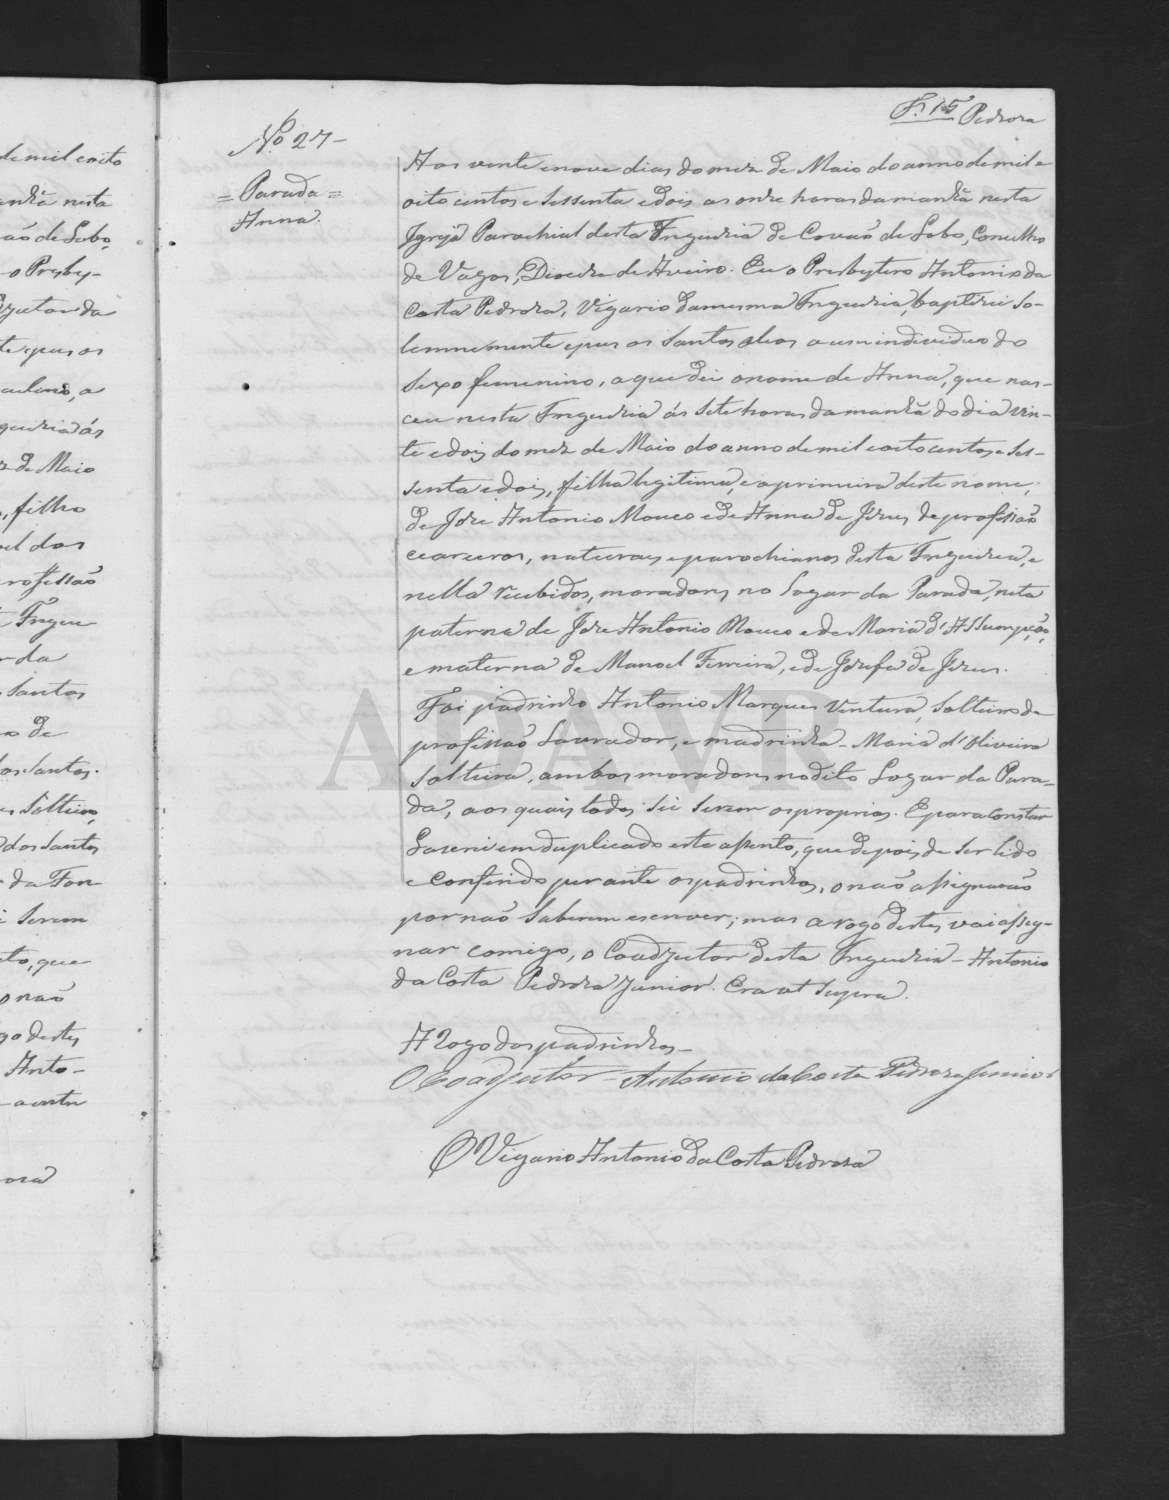 F. 15 Pedroza
Nº 27-
= Parada =
Anna.
Aos vinte e nove dias do mez de Maio do anno de mil e
oito centos e sessenta e dois as onze horas da manhã nesta
Igreja Parochial desta Freguezia de Covão de Lobo, Concelho
de Vagos, Diocese de Aveiro. Eu o Presbytero Antonio da
Costa Pedroza, Vigario da mesma Freguezia, baptizei so-
lemnemente e puz os Santos oleos a um individuo do
sexo femenino, a que dei o nome de Anna, que nas-
ceu nesta Freguezia ás sete horas da manhã do dia vin-
te e dois do mez de Maio do anno de mil e oito centos e ses-
senta e dois, filha legitima, e a primeira deste nome,
de Joze Antonio Mouco e de Anna de Jezus, de profissão
ceareiros, naturaes e parochianos desta Freguezia, e
nella recebidos, moradores no Logar da Parada, neta
paterna de Joze Antonio Mouco e de Maria d'Assumpção,
e materna de Manoel Ferreira, e de Jozefa de Jezus.
Foi padrinho Antonio Marques Ventura, solteiro de
profissão Lavrador, e madrinha - Maria d'Oliveira
solteira, ambos moradores no dito Logar da Para-
da, aos quais todos sei serem os proprios. E para constar
Lavrei em duplicado este assento, que depois de ser lido
e conferido perante os padrinhos, o não assignarão
por não saberem escrever; mas a rogo destes vai assig-
nar comigo, o Coadjutor desta Freguezia - Antonio
da Costa Pedroza Junior. Era ut supra.
A Rogo dos padrinhos -
O Coadjutor - Antonio da Costa Pedroza Junior
O Vigario Antonio da Costa Pedroza
ADAVR
de mil e oito
anhã nesta
ão de Lobo,
o Presby-
djutor da
te e puz os
guezia ás
z de Maio
, filho
rofissão
Fregue
r da
Santos
o de
os Santos.
Solteiro,
dos Santos
da Fon
serem
to, que
o não
go destes
Anto-